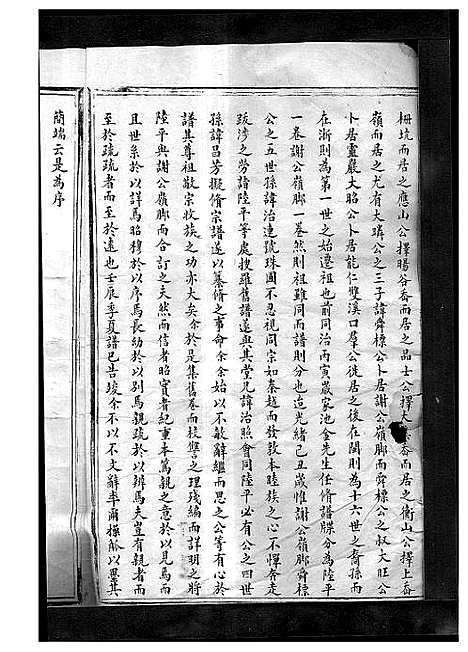 柵坑而居之應山公擇賜谷畚而居之品士公擇大 畚而居之衡山公擇上畚
嶺而居之尤有大璘公之三子諱舜標公卜居謝公嶺腳而舜標公之叔大旺公
卜居靈巖大昭公卜居能仁雙溪口羣公徙居之後在閩則為十六世之裔孫而
在浙則為第一世之始遷祖也前同治丙寅歲家池金先生任修譜牒分為陸平
一卷謝公嶺腳一卷然則祖雖同而譜則分也迨光緒己丑歲惟謝公嶺腳舜標
公之五世孫諱治連號珠圃不忍視同宗如秦越而發敦本睦族之心不憚奔走
跋涉之勞詣陸平等處搜羅舊譜遂與其堂兄諱治照會同陸平必有公之四世
孫諱昌芳擬脩宗譜遂以纂脩之事命余余始以不敏辭繼而思之公等有心於
譜其尊祖敬宗收族之功亦大矣余於是集舊卷而校讐之理殘編而詳明之將
陸平與謝公嶺腳而合訂之夫然而信者昭實者紀重本篤親之意於以見焉而
且世系於以詳焉昭穆於以序焉長幼於以別焉親疏於以辨焉夫豈有親者而
至於疏疏者而至於遠也壬辰季夏譜已告竣余不以不文辭率爾操觚以畧其
簡端云是為序